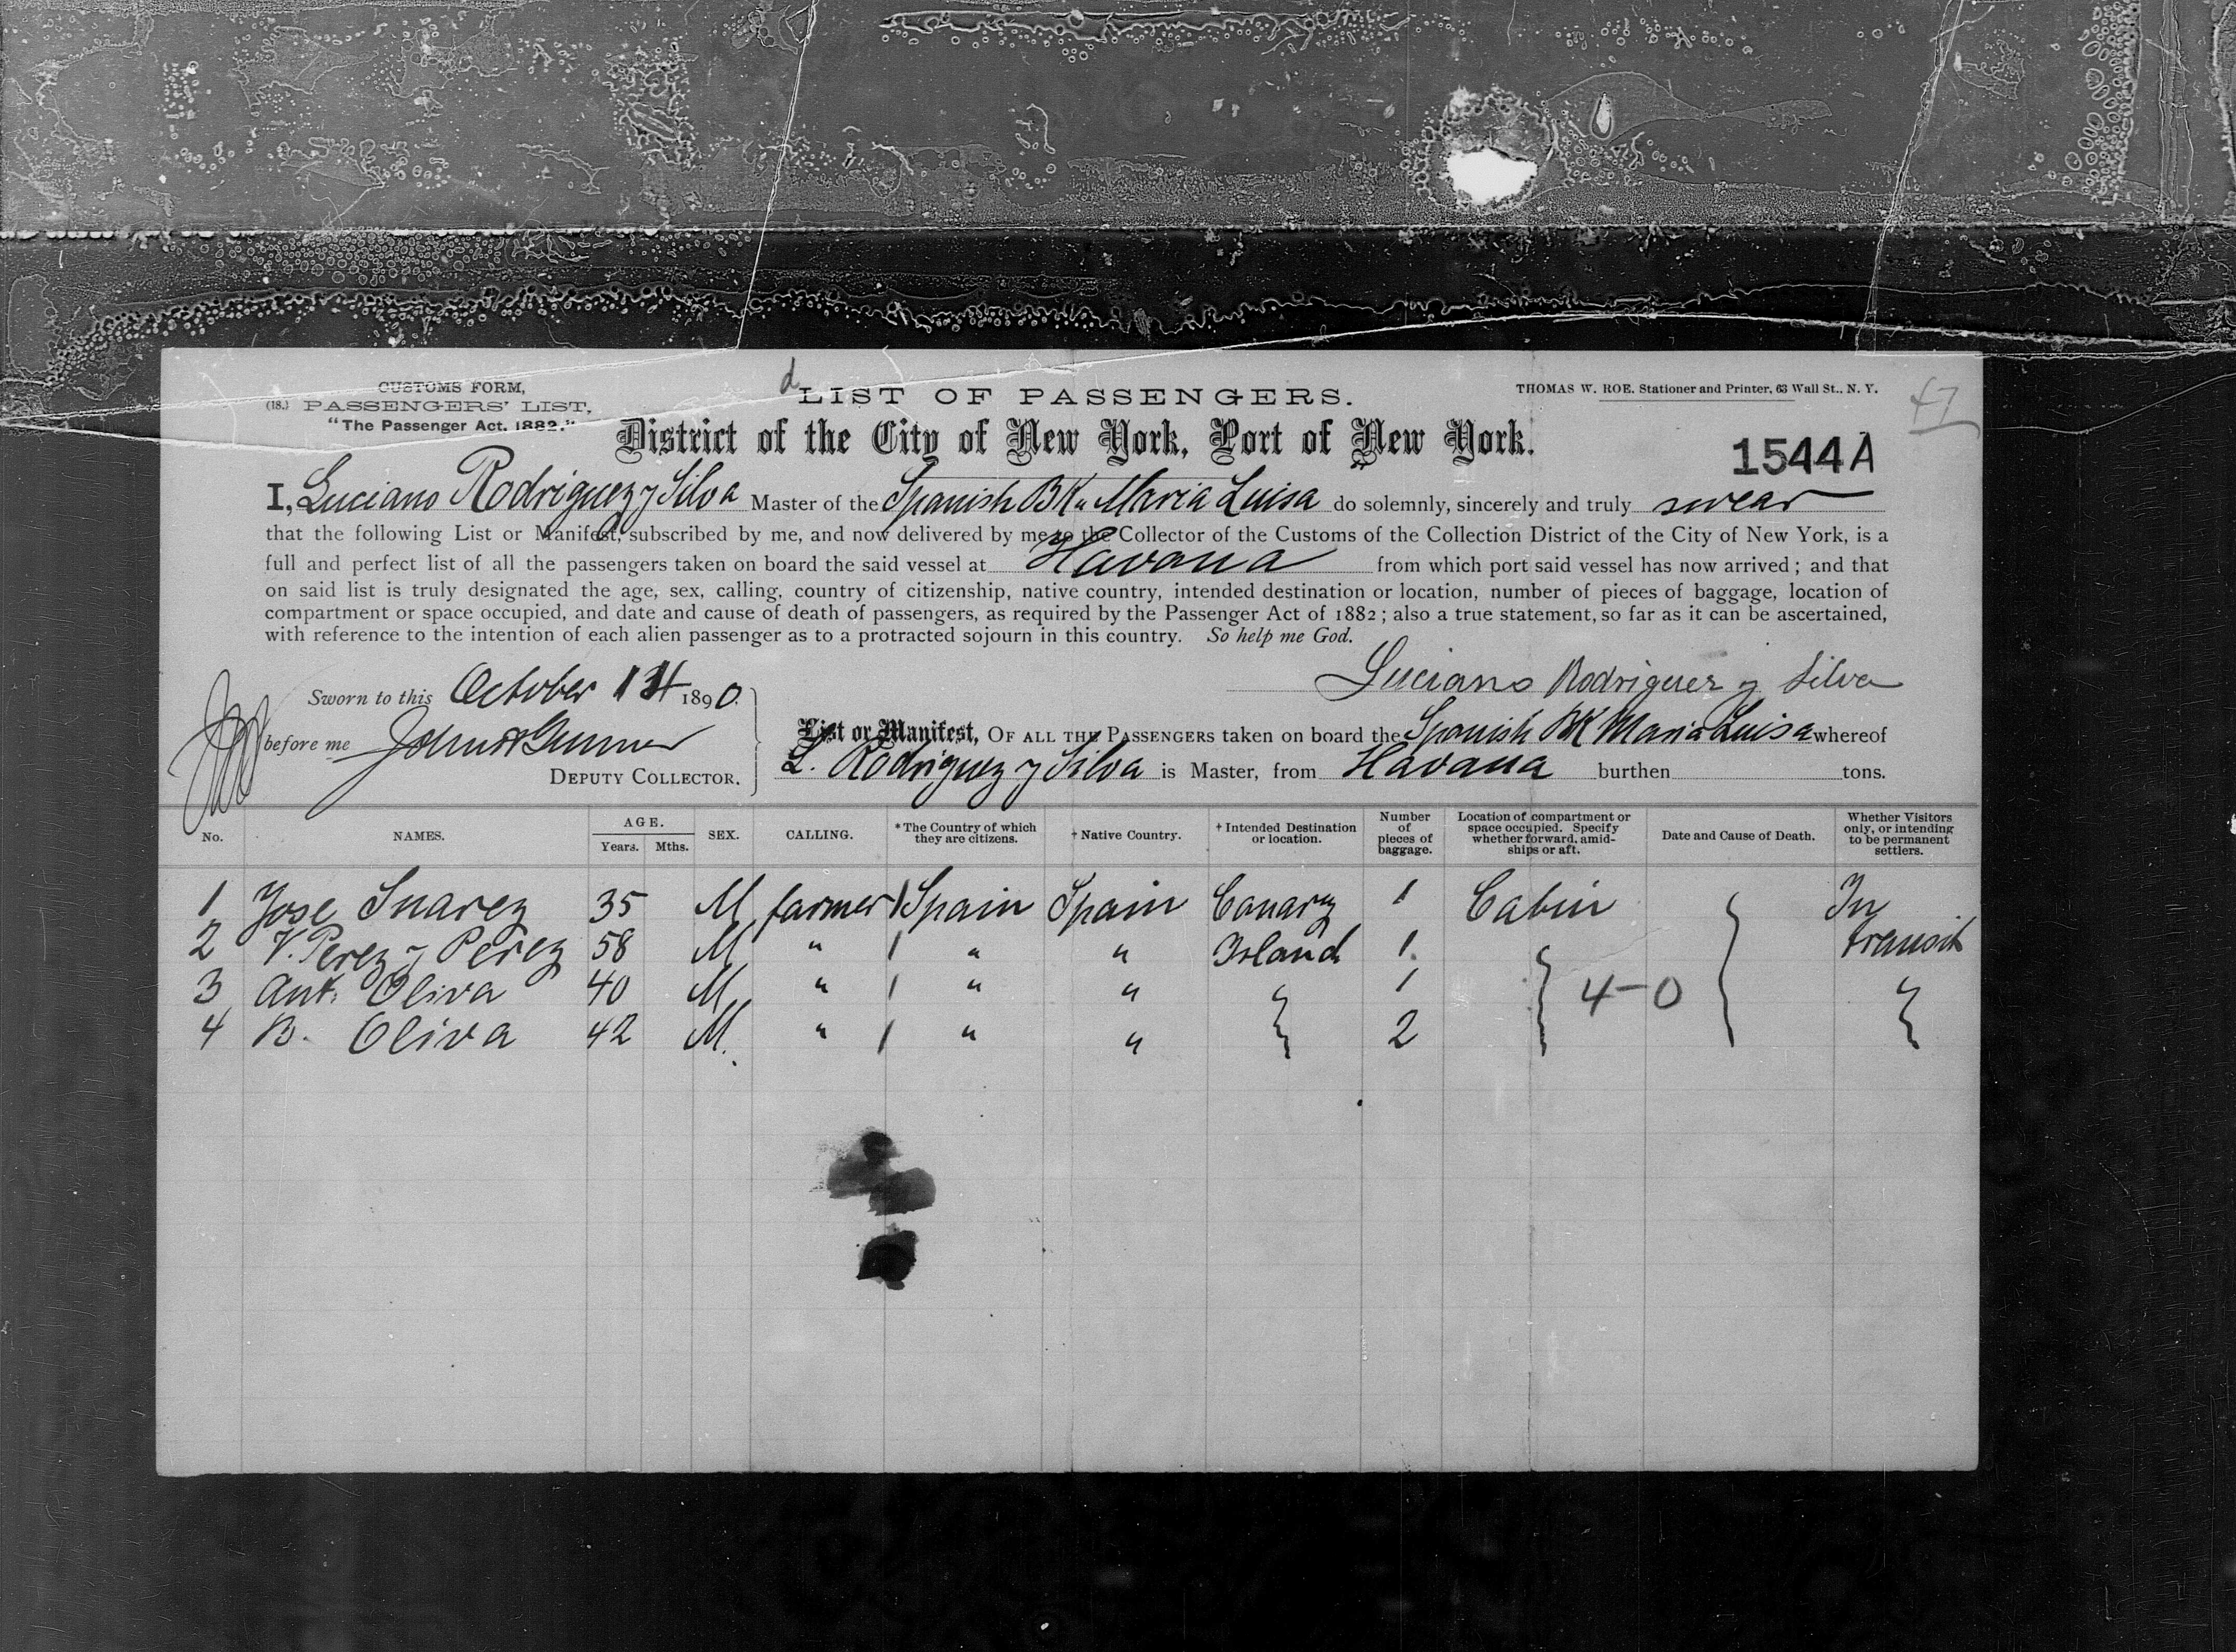 CUSTOMS FORM,
(18.) PASSENGERS' LIST,
"The Passenger Act, 1882."
d
LIST OF PASSENGERS.
THOMAS W. ROE, Stationer and Printer, 63 Wall St., N. Y.
47
District of the City of New York, Port of New York.
1544A
I, Luciano Rodriguez y Silva Master of the Spanish BK " Maria Luisa do solemnly, sincerely and truly swear
that the following List or Manifest, subscribed by me, and now delivered by me to the Collector of the Customs of the Collection District of the City of New York, is a
full and perfect list of all the passengers taken on board the said vessel at Havana from which port said vessel has now arrived; and that
on said list is truly designated the age, sex, calling, country of citizenship, native country, intended destination or location, number of pieces of baggage, location of
compartment or space occupied, and date and cause of death of passengers, as required by the Passenger Act of 1882; also a true statement, so far as it can be ascertained,
with reference to the intention of each alien passenger as to a protracted sojourn in this country. So help me God.
Luciano Rodriguez y Silva
Sworn to this October 1890.
before me John Gunner
DEPUTY COLLECTOR.
List or Manifest, OF ALL THE PASSENGERS taken on board the Spanish BK Maria Luisa whereof
L. Rodriguez y Silva is Master, from Havana burthen tons.
No. NAMES. AGE. Years. Mths. SEX. CALLING. *The Country of which they are citizens. †Native Country. †Intended Destination or location. Number of pieces of baggage. Location of compartment or space occupied. Specify whether forward, amidships or aft. Date and Cause of Death. Whether Visitors only, or intending to be permanent settlers.
1 Jose Suarez 35 M farmer 1 Spain Spain Canary 1 Cabin In
2 V. Perez y Perez 58 M " 1 " " Island 1 transit
3 Ant. Oliva 40 M " 1 " " 1 4-0
4 B. Oliva 42 M. " 1 " " 2